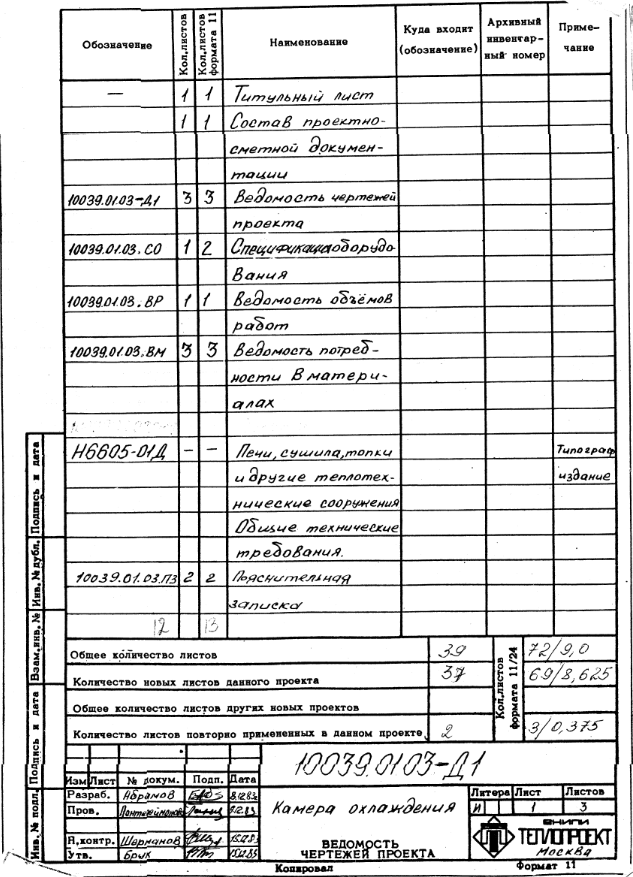 Обозначение Кол.листов Кол.листов формата 11 Наименование Куда входит (обозначение) Архивный инвентар- ный номер Приме- чание
— 1 1 Титульный лист
1 1 Состав проектно-
сметной докумен-
тации
10039.01.03-Д1 3 3 Ведомость чертежей
проекта
10039.01.03.СО 1 2 Спецификация оборудо
вания
10039.01.03.ВР 1 1 Ведомость объёмов
работ
10039.01.03.ВМ 3 3 Ведомость потреб-
ности в матери-
алах
Н6605-01Д — — Печи, сушила, топки Типограф
и другие теплотех- издание
нические сооружения
Общие технические
требования.
10039.01.03.ПЗ 2 2 Пояснительная
записка
12 13
Общее количество листов 39 Кол.листов формата 11/24 72/9,0
Количество новых листов данного проекта 37 69/8,625
Общее количество листов других новых проектов
Количество листов повторно примененных в данном проекте 2 3/0,375
10039.0103-Д1
Изм Лист № докум. Подп. Дата
Разраб. Абрамов
Пров.
Н.контр. Шерманов
Утв. Брук
Камера охлаждения
ВЕДОМОСТЬ
ЧЕРТЕЖЕЙ ПРОЕКТА
Литера Лист Листов
И 1 3
ВНИПИ
ТЕПЛОПРОЕКТ
Москва
Копировал Формат 11
Инв. № подл. Подпись и дата Взам.инв. № Инв. № дубл. Подпись и дата